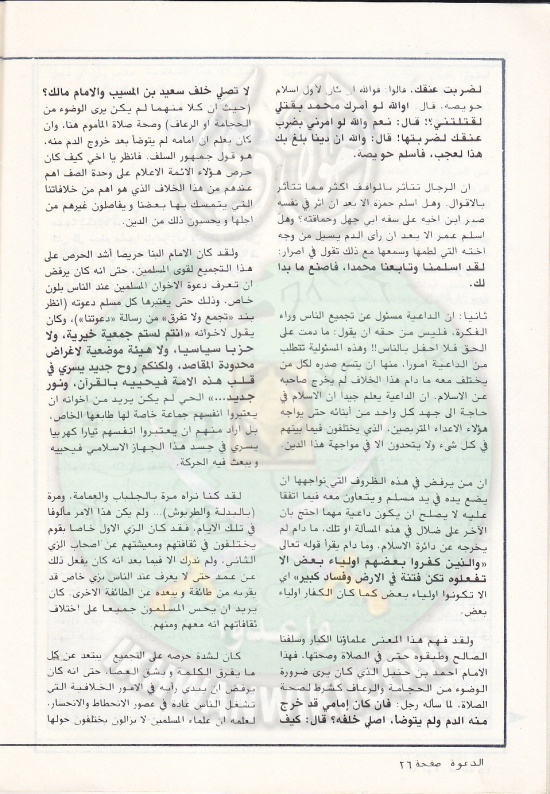 لضربت عنقك. قالوا: فوالله ان كان لأول اسلام
حويصه. قال اوالله لو أمرك محمد بقتلي
لقتلتني؟! قال: نعم والله لو امرني بضرب
عنقك لضربتها! قال: والله ان دينا بلغ بك
هذا لعجب، فأسلم حويصة.
ان الرجال تتأثر بالمواقف اكثر مما تتأثر
بالاقوال. وهل اسلم حمزة الا بعد ان اثر في نفسه
صبر ابن اخيه على سفه ابي جهل وحماقته؟ وهل
اسلم عمر الا بعد ان رأى الدم يسيل من وجه
اخته التي لطمها وسمعها مع ذلك تقول في اصرار:
لقد اسلمنا وتابعنا محمدا، فاصنع ما بدا
لك.
ثانيا: ان الداعية مسئول عن تجميع الناس وراء
الفكرة. فليس من حقه ان يقول: ما دمت على
الحق فلا احفل بالناس!! وهذه المسئولية تتطلب
من الداعية امورا، منها ان يتسع صدره لكل من
يختلف معه ما دام هذا الخلاف لم يخرج صاحبه
عن الاسلام. ان الداعية يعلم جيدا ان الاسلام في
حاجة الى جهد كل واحد من أبنائه حتى يواجه
هؤلاء الاعداء المتربصين، الذي يختلفون فيما بينهم
في كل شىء ولا يتحدون الا في مواجهة هذا الدين.
ان من يرفض في هذه الظروف التي نواجهها ان
يضع يده في يد مسلم ويتعاون معه فيما اتفقا
عليه لا يصلح ان يكون داعية مهما احتج بان
الآخر على ضلال في هذه المسألة او تلك، ما دام لم
يخرجه عن دائرة الاسلام، وما دام يقرأ قوله تعالى
«والذين كفروا بعضهم اولياء بعض الا
تفعلوه تكن فتنة في الارض وفساد كبير» اي
الا تكونوا اولياء بعض كما كان الكفار اولياء
بعض.
ولقد فهم هذا المعنى علماؤنا الكبار وسلفنا
الصالح وطبقوه حتى في الصلاة وصحتها، فهذا
الامام احمد بن حنبل الذي كان يرى ضرورة
الوضوء من الحجامة والرعاف كشرط لصحة
الصلاة، لما سأله رجل: فان كان إمامي قد خرج
منه الدم ولم يتوضأ، اصلي خلفه؟ قال: كيف
لا تصلي خلف سعيد بن المسيب والامام مالك؟
(حيث ان كلا منهما لم يكن يرى الوضوء من
الحجامة او الرعاف) وصحة صلاة المأموم هنا، وان
كان يعلم ان امامه لم يتوضأ بعد خروج الدم منه،
هو قول جمهور السلف. فانظر يا اخي كيف كان
حرص هؤلاء الائمة الاعلام على وحدة الصف اهم
عندهم من هذا الخلاف الذي هو اهم من خلافاتنا
التي يتمسك بها بعضنا ويفاصلون غيرهم من
اجلها ويحسبون ذلك من الدين.
ولقد كان الامام البنا حريصا أشد الحرص على
هذا التجميع لقوى المسلمين. حتى انه كان يرفض
ان تعرف دعوة الاخوان المسلمين عند الناس بلون
خاص. وذلك حتى يعتبرها كل مسلم دعوته (انظر
بند «تجمع ولا تفرق» من رسالة «دعوتنا»)، وكان
يقول لاخوانه «انتم لستم جمعية خيرية، ولا
حزبا سياسيا، ولا هيئة موضعية لاغراض
محدودة المقاصد، ولكنكم روح جديد يسري في
قلب هذه الامة فيحييه بالقرآن، ونور
جديد...» الحي لم يكن يريد من إخوانه ان
يعتبروا انفسهم جماعة خاصة لها طابعها الخاص،
بل اراد منهم ان يعتبروا انفسهم تيارا كهربيا
يسري في جسد هذا الجهاز الاسلامي فيحييه
ويبعث فيه الحركة.
لقد كنا نراه مرة بالجلباب والعمامة، ومرة
(بالبدلة والطربوش)... ولم يكن هذا الامر مألوفا
في تلك الايام. فقد كان الزي الاول خاصا بقوم
يختلفون في ثقافتهم ومعيشتهم عن اصحاب الزي
الثاني. ولم ندرك الا فيما بعد انه كان يفعل ذلك
عن عمد حتى لا يعرف عند الناس بزي خاص قد
يقربه من طائفة ويبعده عن الطائفة الاخرى. كان
يريد ان يحس المسلمون جميعا على اختلاف
ثقافاتهم انه معهم ومنهم.
كان لشدة حرصه على التجميع يبتعد عن كل
ما يفرق الكلمة ويشق العصا. حتى انه كان
يرفض ان يبدي رأيه في الامور الخلافية التي
تشغل الناس عادة في عصور الانحطاط والانحسار،
لعلمه ان علماء المسلمين لا يزالون يختلفون حولها
الدعوة صفحة ٢٦